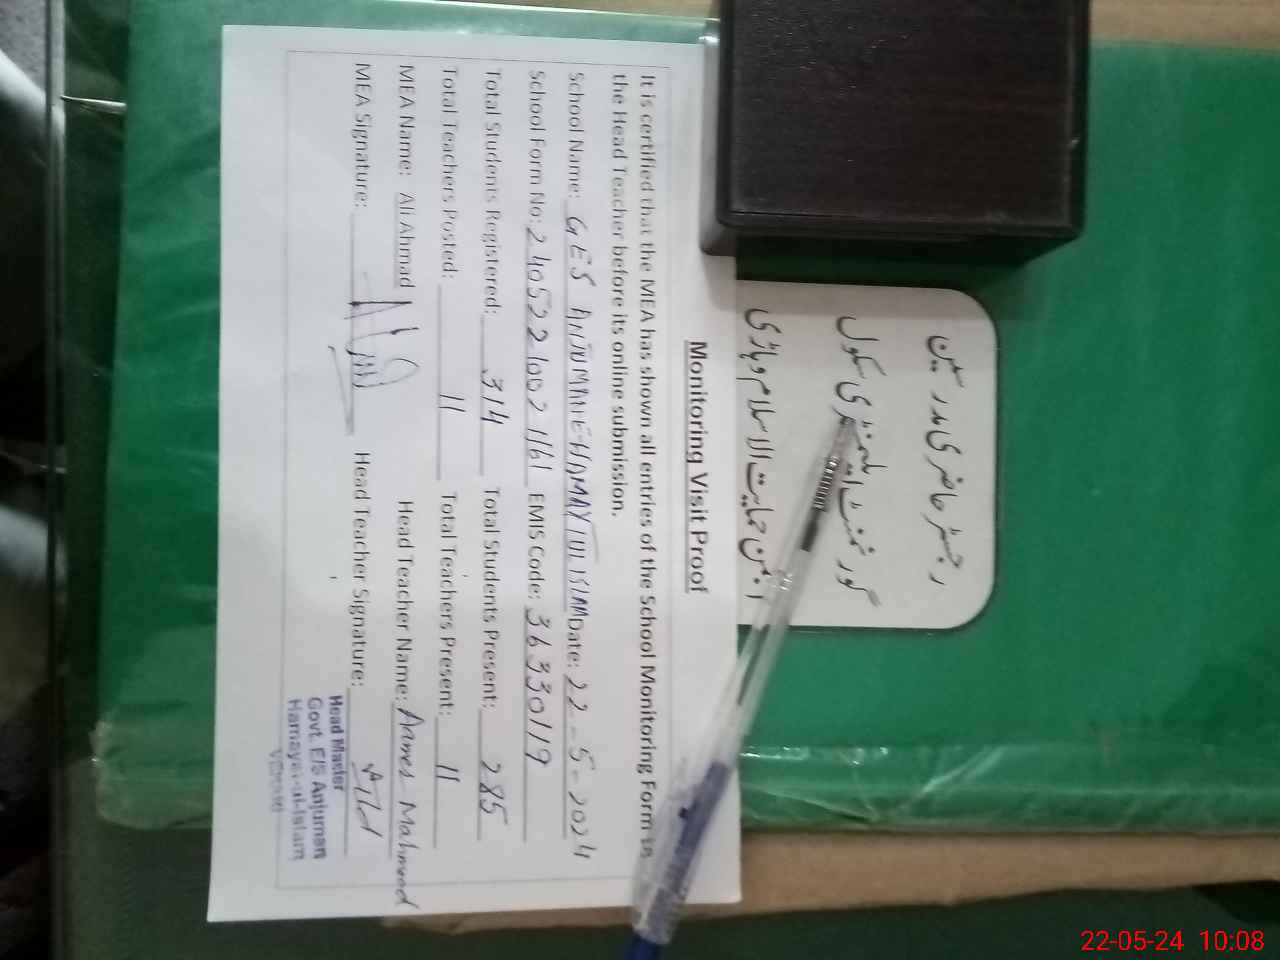 Monitoring Visit Proof
It is certified that the MEA has shown all entries of the School Monitoring Form to
the Head Teacher before its online submission.
School Name: GES ANJUMAN-E-HAMAYTUL ISLAM Date: 22-5-2024
School Form No: 24052210021161 EMIS Code: 36330119
Total Students Registered: 314 Total Students Present: 285
Total Teachers Posted: 11 Total Teachers Present: 11
MEA Name: Ali Ahmad Head Teacher Name: Aamer Mahmood
MEA Signature: Head Teacher Signature:
Head Master
Govt. E/S Anjuman
Hamayet-ul-Islam
رجسٹر حاضری مدرسین
گورنمنٹ ایلیمنٹری سکول
انجمن حمایت الاسلام وہاڑی
22-05-24 10:08